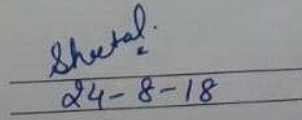 Sheetal.
24-8-18